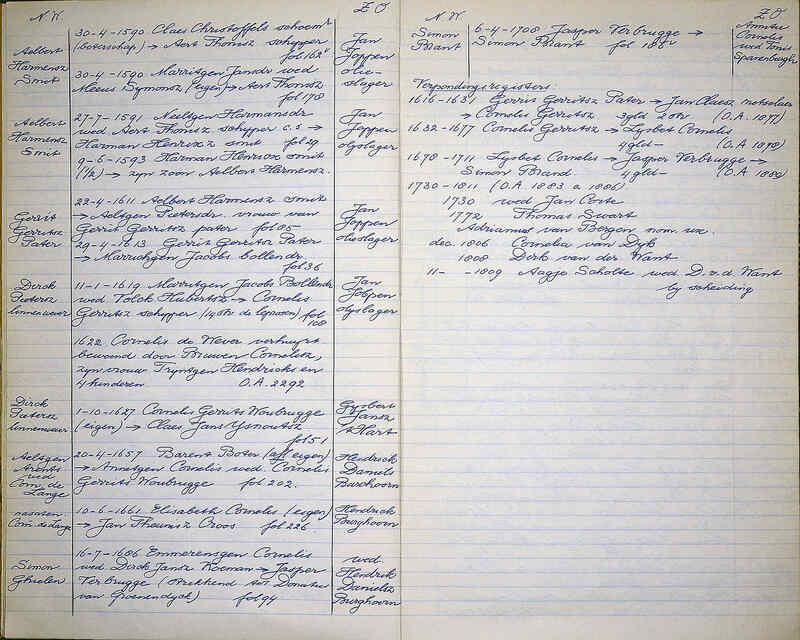 N.W.
Z.O.
30-4-1590 Claes Christoffels schoenm
(boterschap) → Aert Thonisz schipper
fol 162v
Aelbert
Harmensz
Smit
Jan
Joppen
olie-
slager
30-4-1590 Marritgen Jansdr wed
Meeus Symonsz (eigen) → Aert Thonisz
fol 178
27-7-1591 Neeltgen Harmansdr
wed Aert Thonisz schyper c.s →
Harman Henricxz smit fol 29
9-6-1593 Harman Henricx smit
(1/2) → zyn zoon Aelbert Harmensz.
Aelbert
Harmensz
Smit
Jan
Joppen
olyslager
22-4-1611 Aelbert Harmensz smit
→ Aeltgen Pietersdr. vrouw van
Gerrit Gerritsz pater fol 85
29-4-1613 Gerrit Gerritsz Pater
→ Marrichgen Jacobs bollendr.
fol 36
Gerrit
Gerritsz
Pater
Jan
Joppen
olieslager
11-1-1619 Marritgen Jacobs Bollendr
wed Volck Hubertsz → Cornelis
Gerritsz schipper (14 str de leprosen) fol
108
Dirck
Pietersz
linnenwever
Jan
Jobpen
olyslager
1622 Cornelis de Wever verhuyst
bewoond door Bruwen Cornelisz,
zyn vrouw Tryntgen Hendricks en
4 kinderen O.A. 2292
1-10-1627 Cornelis Gerrits Woubrugge
(eigen) → Claes Jans Ysnoutsz
fol 51
Dirck
Pietersz
linnenwever
Gysbert
Jansz
't Hart
20-4-1657 Barent Boter (aff eigen)
→ Annetgen Cornelis wed Cornelis
Gerrits Woubrugge fol 202.
Aeltgen
Arents
wed
Corn. de
Lange
Heidrick
Daniels
Burchoorn
10-6-1661 Elisabeth Cornelis (eigen)
→ Jan Theunisz Croos fol 226
naasten
Corn. de Lange
Hendrick
Burghoorn
16-7-1686 Emmerensgen Cornelis
wed Dirck Jansz Koeman → Jasper
Ter Brugge (strekkend tot Donatus
van Groenendyck) fol 94
Simon
Ghielen
wed.
Hendrik
Danielsz
Burghoorn
N.W.
Z.O.
Simon
Brant
6-4-1708 Jasper Verbrugge →
Simon Brant fol 185
Annetie
Cornelis
wed Tonis
Sparenburgh
Verpondingsregisters.
1616-1631 Gerris Gerritsz Pater → Jan Claesz metselaer
→ Cornelis Gerritsz 3gld 20 st (O.A. 1877)
1632-1677 Cornelis Gerritsz → Lysbet Cornelis
4 gld- (O.A. 1878)
1678-1711 Lysbet Cornelis → Jasper Verbrugge →
Simon Brand. 4 gld- (O.A. 1882)
1730-1811 (O.A. 1883 a 1886)
1730 wed Jan Corte
1772 Thomas Swart
Adrianus van Bergen nom. ux.
dec. 1806 Cornelia van Dyk
1808 Dirk van der Want
11- -1809 Aagje Scholte wed D. v. d. Want
by scheiding